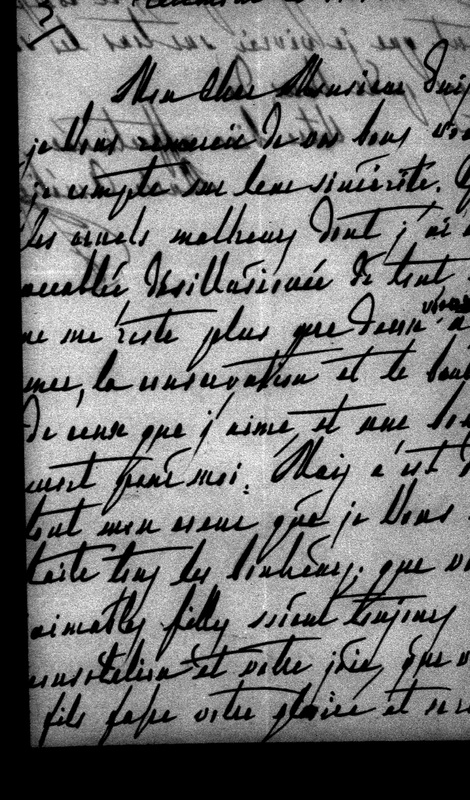 Mon cher Monsieur
je vous remercie de vos bons
je compte sur leur sincérité.
les cruels malheurs dont j'ai
accablée, désillusionnée de tout
ne me reste plus que deux
mer, la conservation et le
de ceux que j'aime, et une
mort pour moi. Mais c'est
tout mon coeur que je vous
haite tous les bonheurs; que
aimables filles soient toujours
consolation et votre joie, que
fils fasse votre gloire et